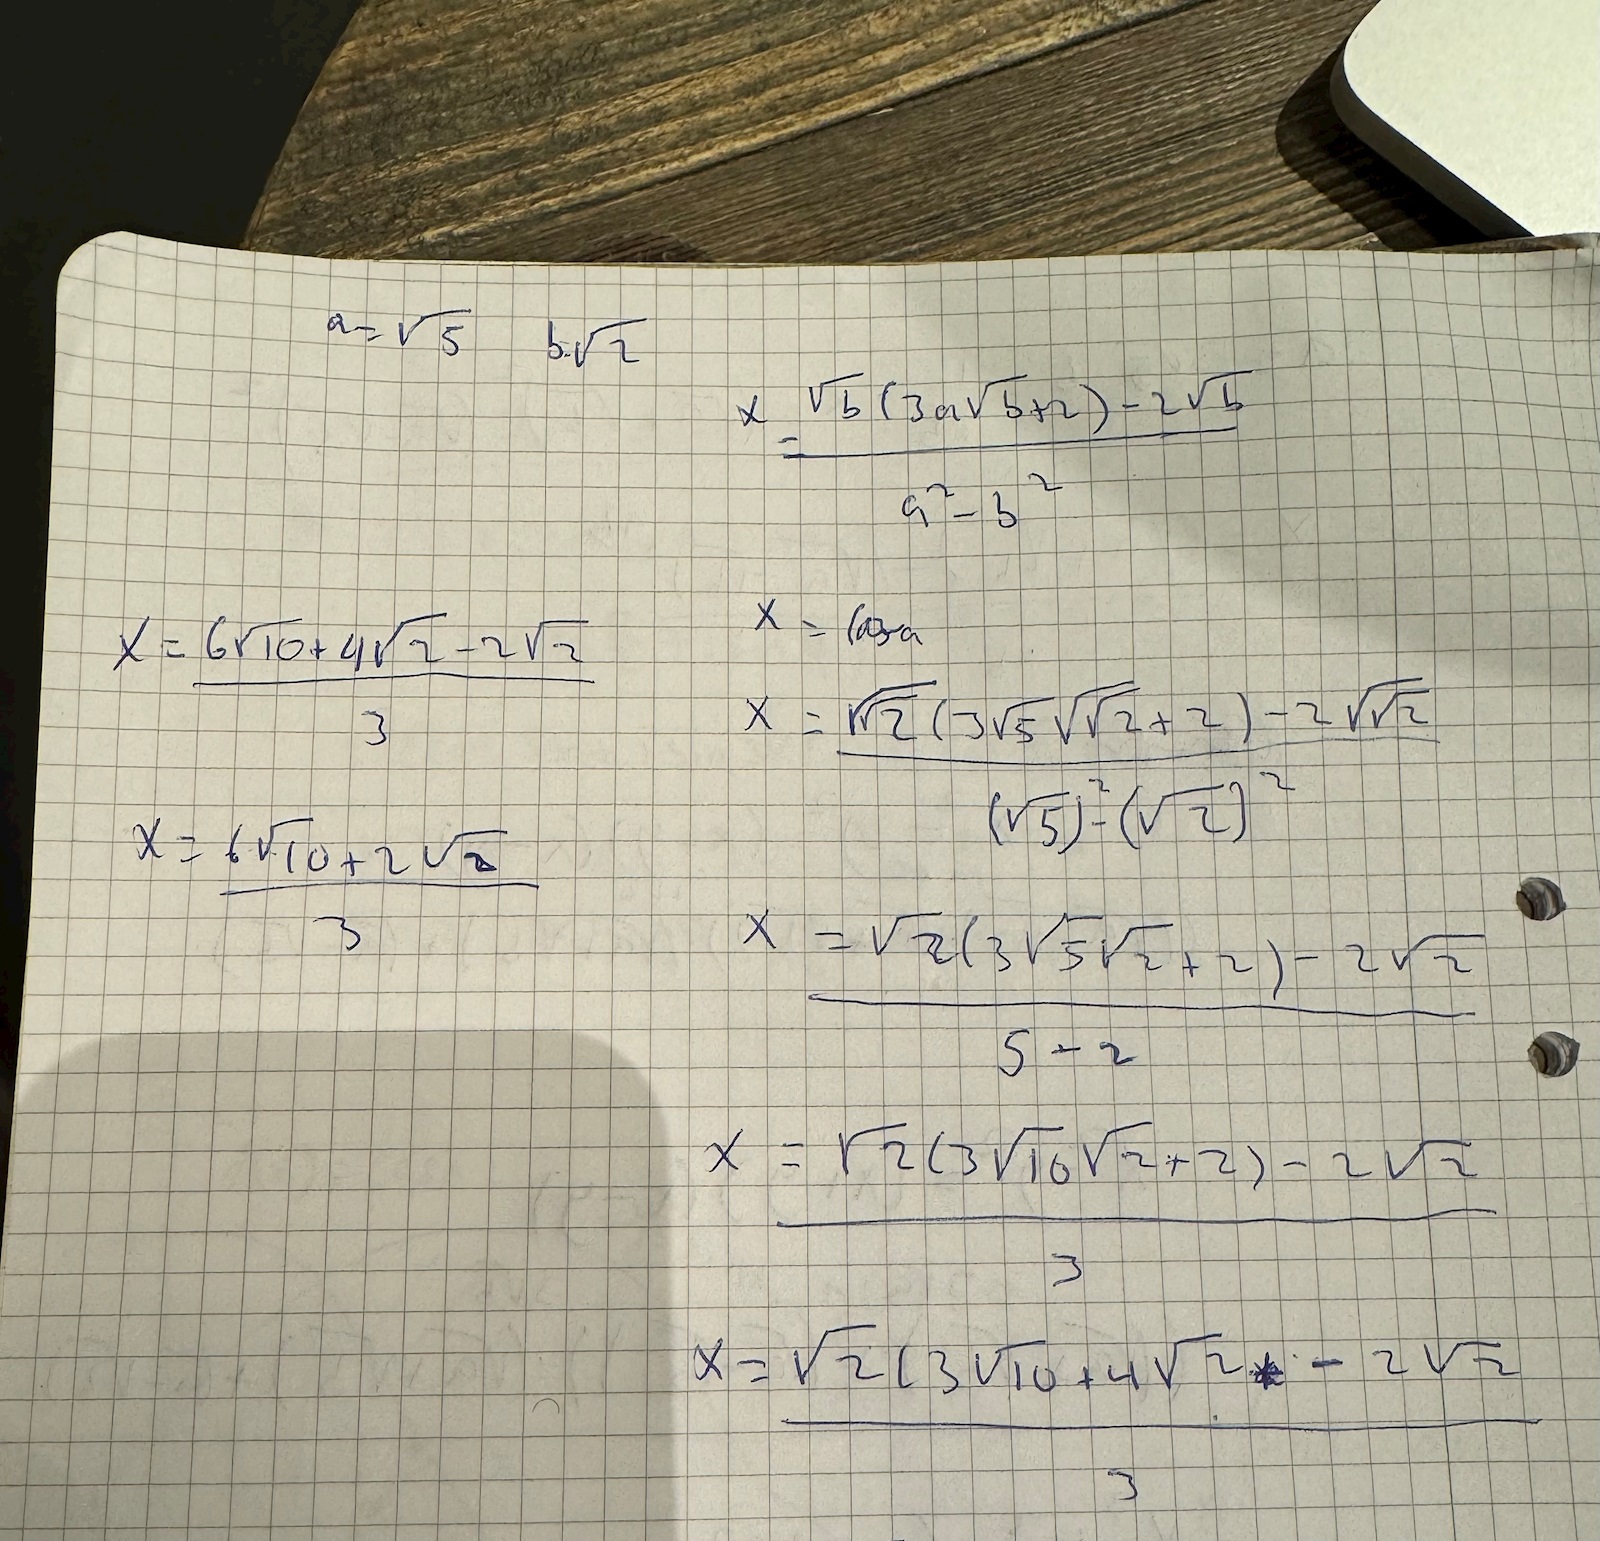 a = √5 b = √2
x = (√b(3a√b+2) - 2√b)/(a² - b²)
x =
x = (√√2(3√5√√2+2) - 2√√2)/((√5)² - (√2)²)
x = (√2(3√5√2+2) - 2√2)/(5 - 2)
x = (√2(3√10√2+2) - 2√2)/3
x = (√2(3√10+4√2 - 2√2)/3
x = (6√10+4√2-2√2)/3
x = (6√10+2√2)/3